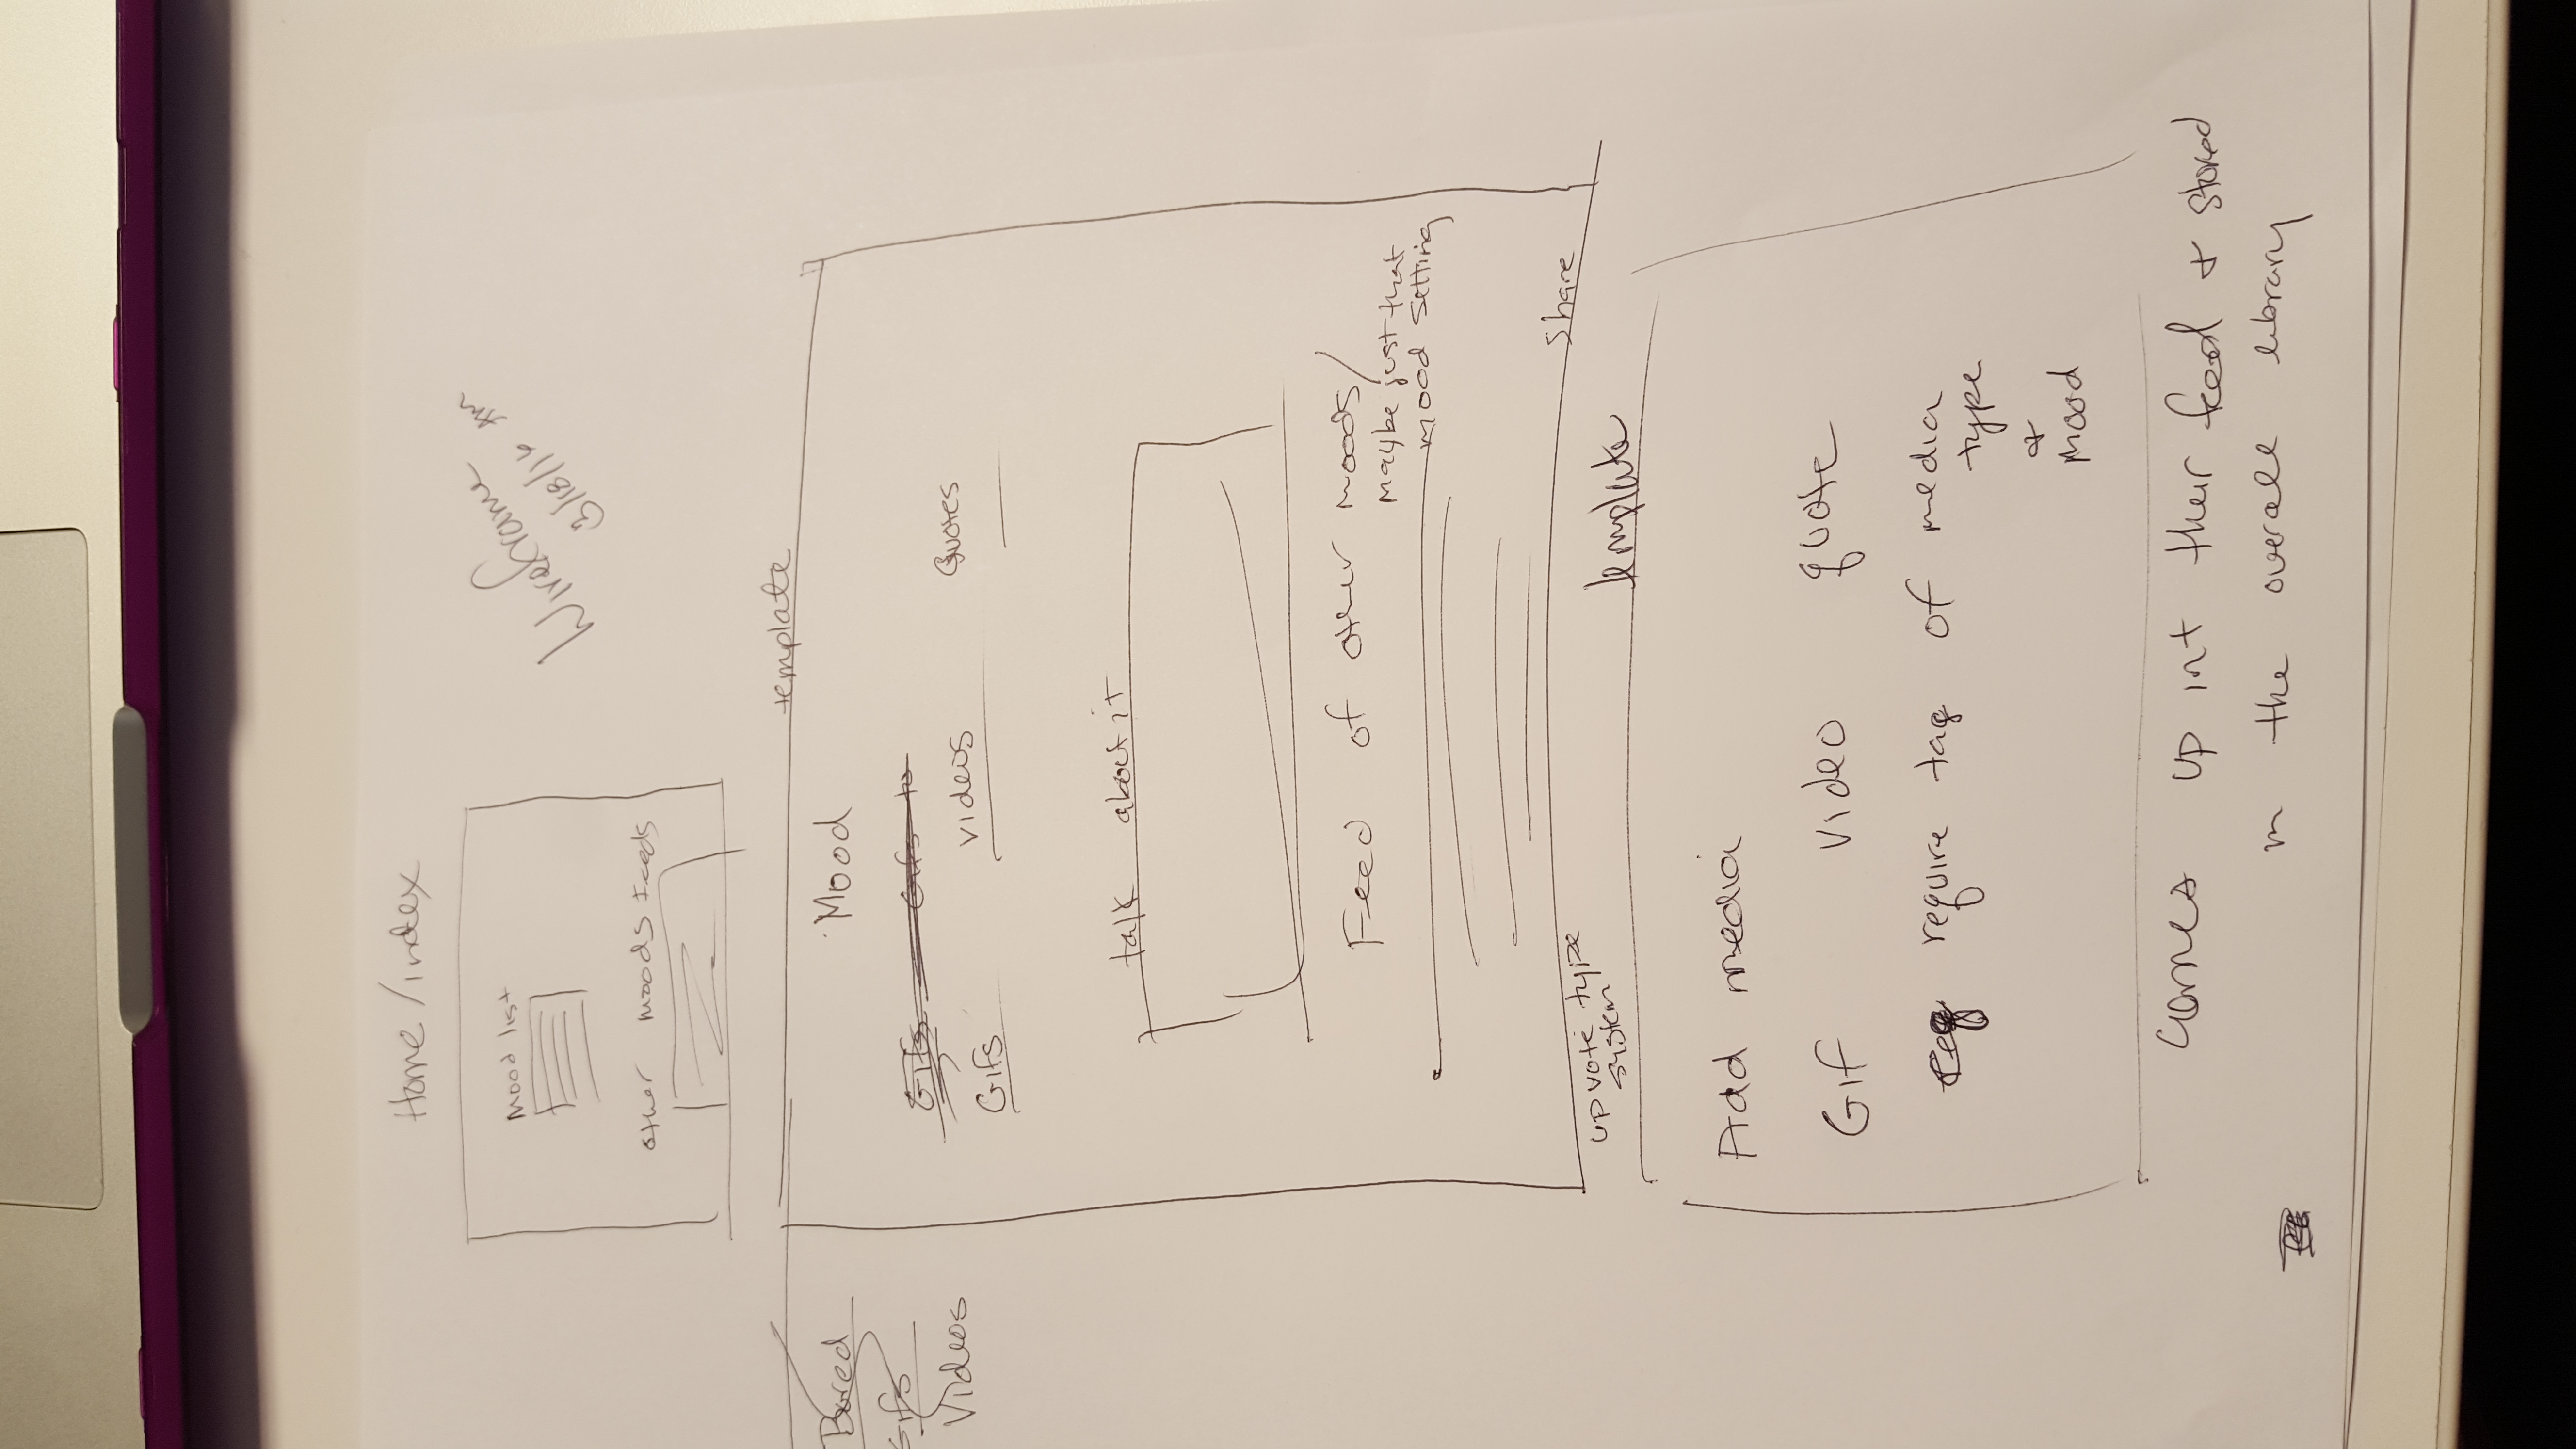 Home/index
Wireframe
3/18/16 AM
Mood list
other moods feeds
template
Mood
Bored
Gifs
Videos
Gifs Gifs to
Gifs videos Quotes
talk about it
Feed of other moods/
maybe just that
mood setting
Share
upvote type
system
template
Add media
Gif video quote
req require tag of media
type
&
Mood
comes up int their feed & stored
in the overall library